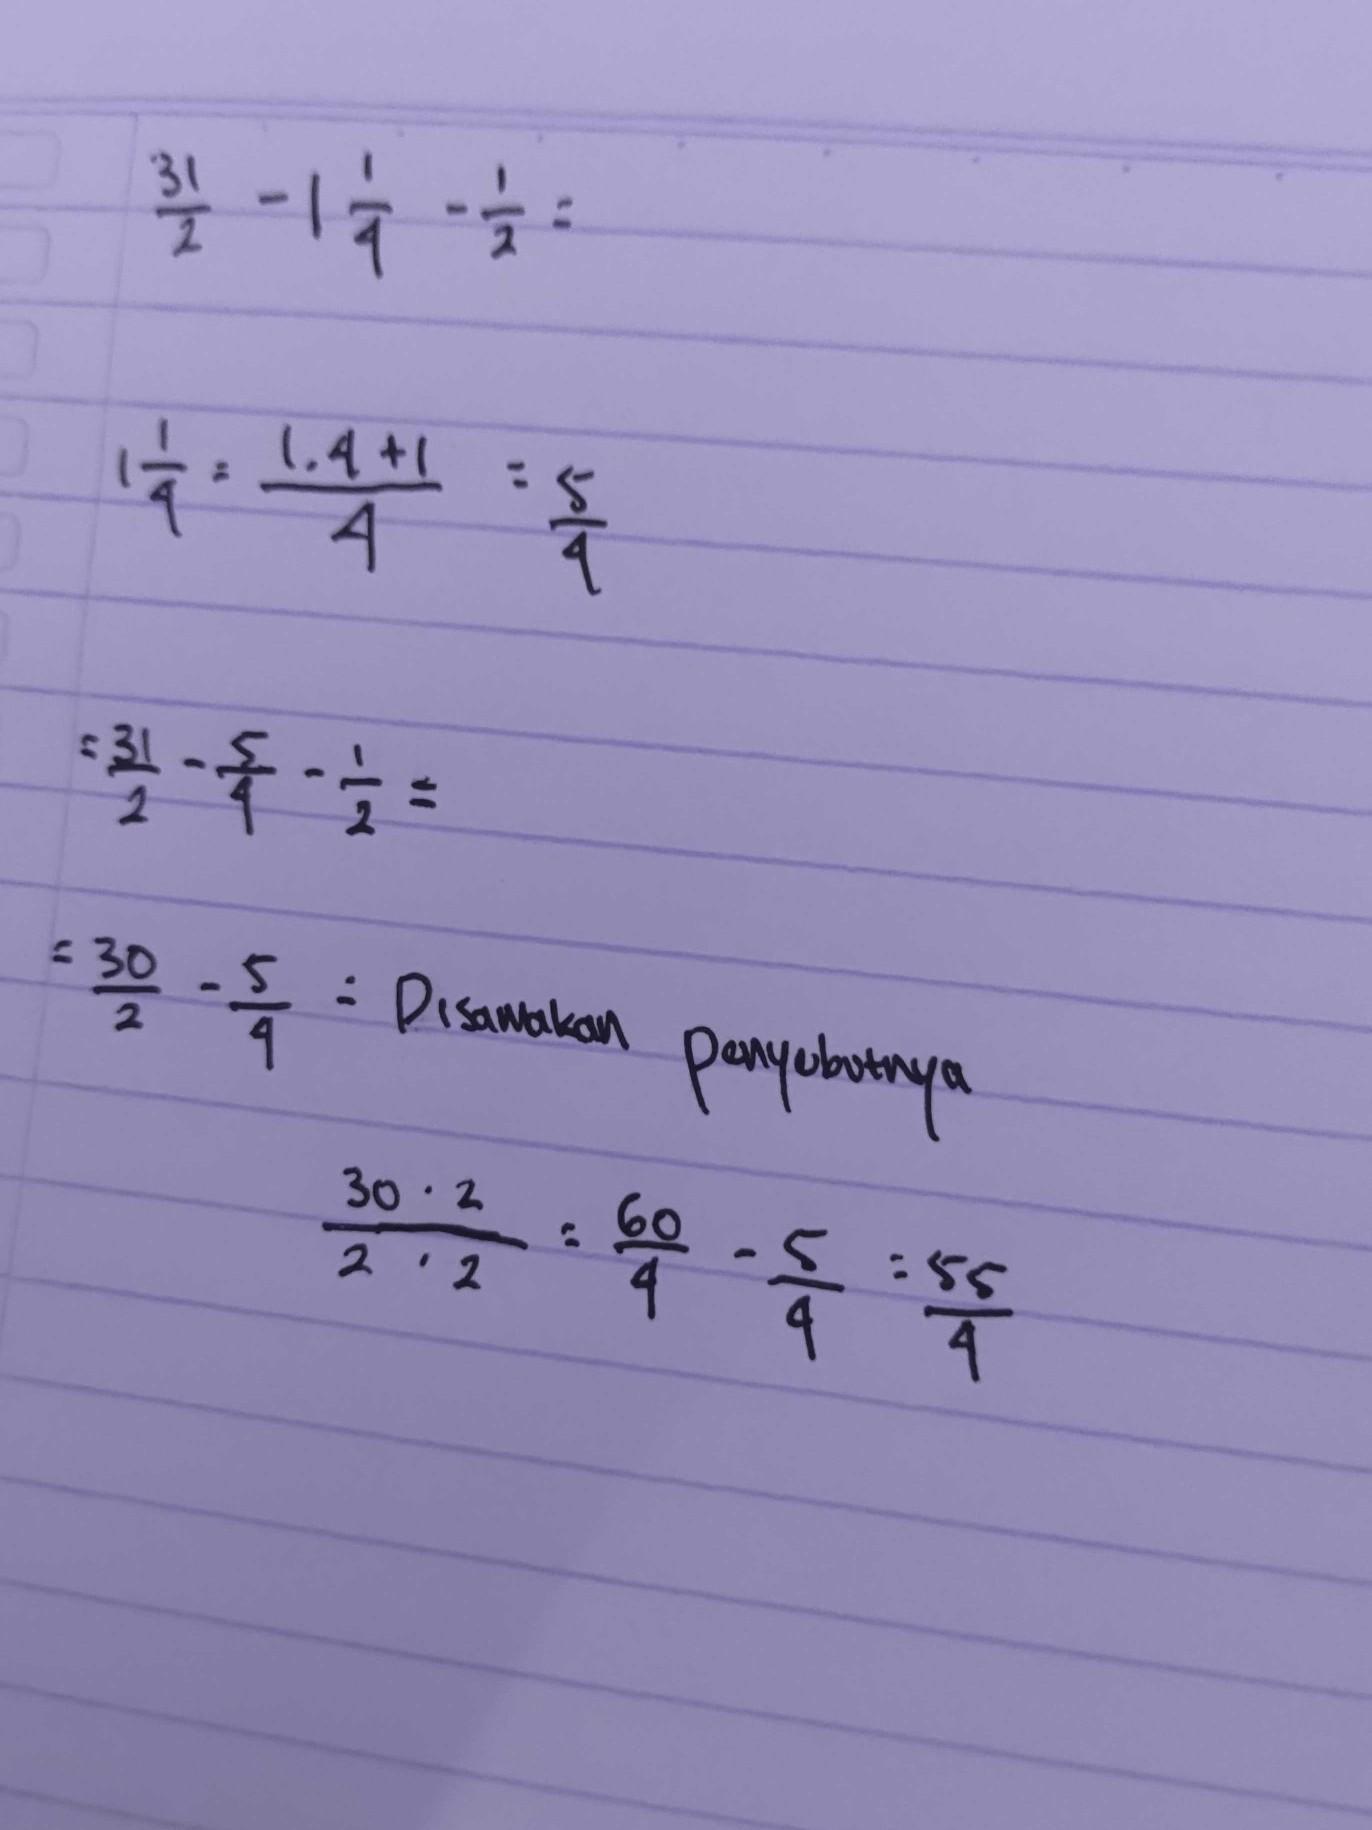 31/2 - 1 1/4 - 1/2 =
1 1/4 = (1.4+1)/4 = 5/4
= 31/2 - 5/4 - 1/2 =
= 30/2 - 5/4 = Disamakan penyebutnya
(30 · 2)/(2 · 2) = 60/4 - 5/4 = 55/4